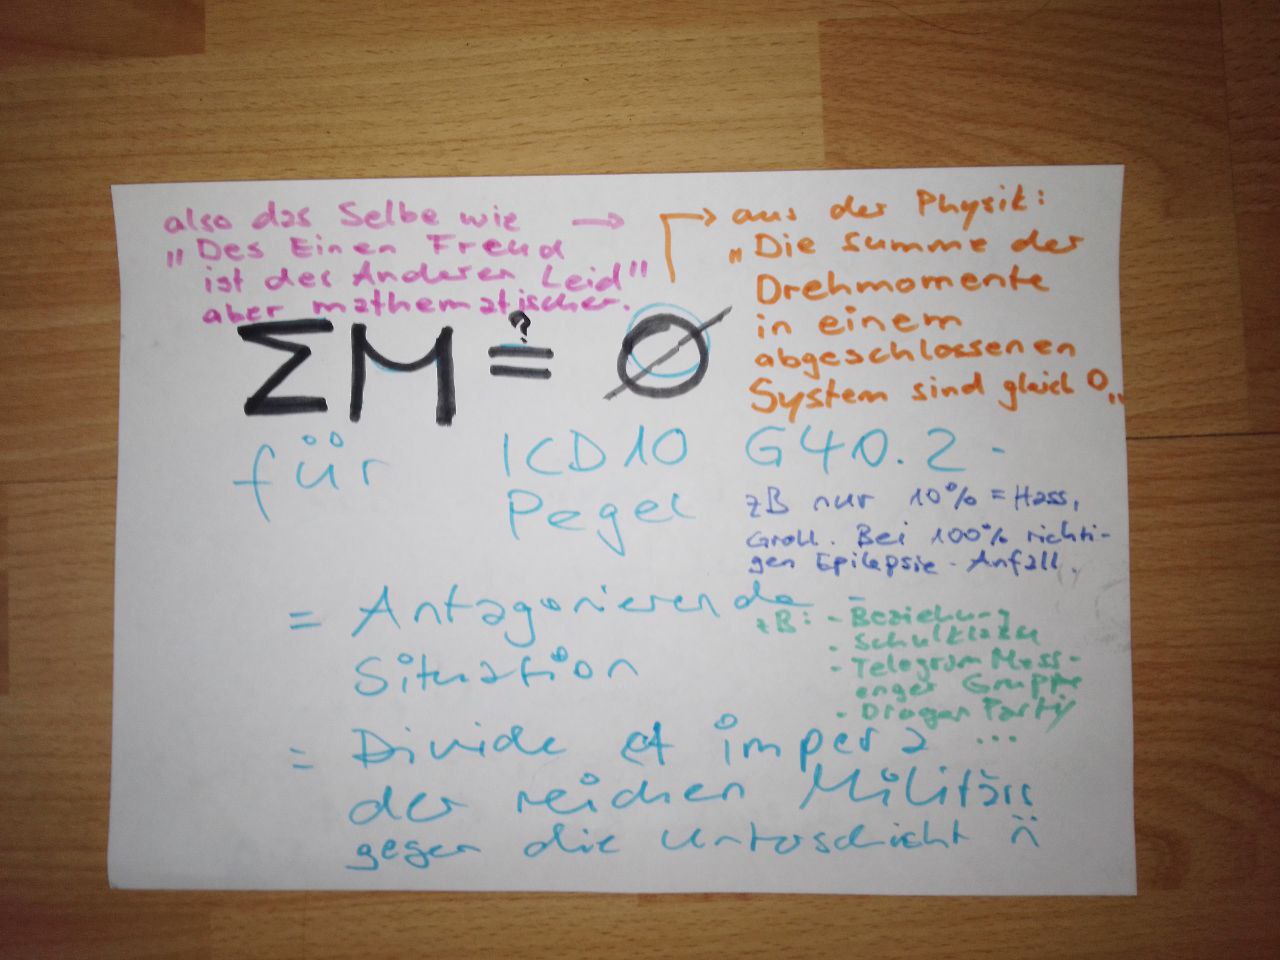 also das Selbe wie →
„Des Einen Freud
ist des Anderen Leid"
aber mathematischer.
→ aus der Physik:
„Die Summe der
Drehmomente
in einem
abgeschlossenen
System sind gleich 0„
ΣM ≟ Ø
für ICD10 G40.2-
Pegel
zB nur 10% = Hass,
Groll. Bei 100% richti-
gen Epilepsie-Anfall.
= Antagonierende
Situation
zB: - Beziehung
- Schulklasse
- Telegram Mess-
enger Gruppe
- Drogen Party
...
= Divide et impera
der reichen Militärs
gegen die Unterschicht ..